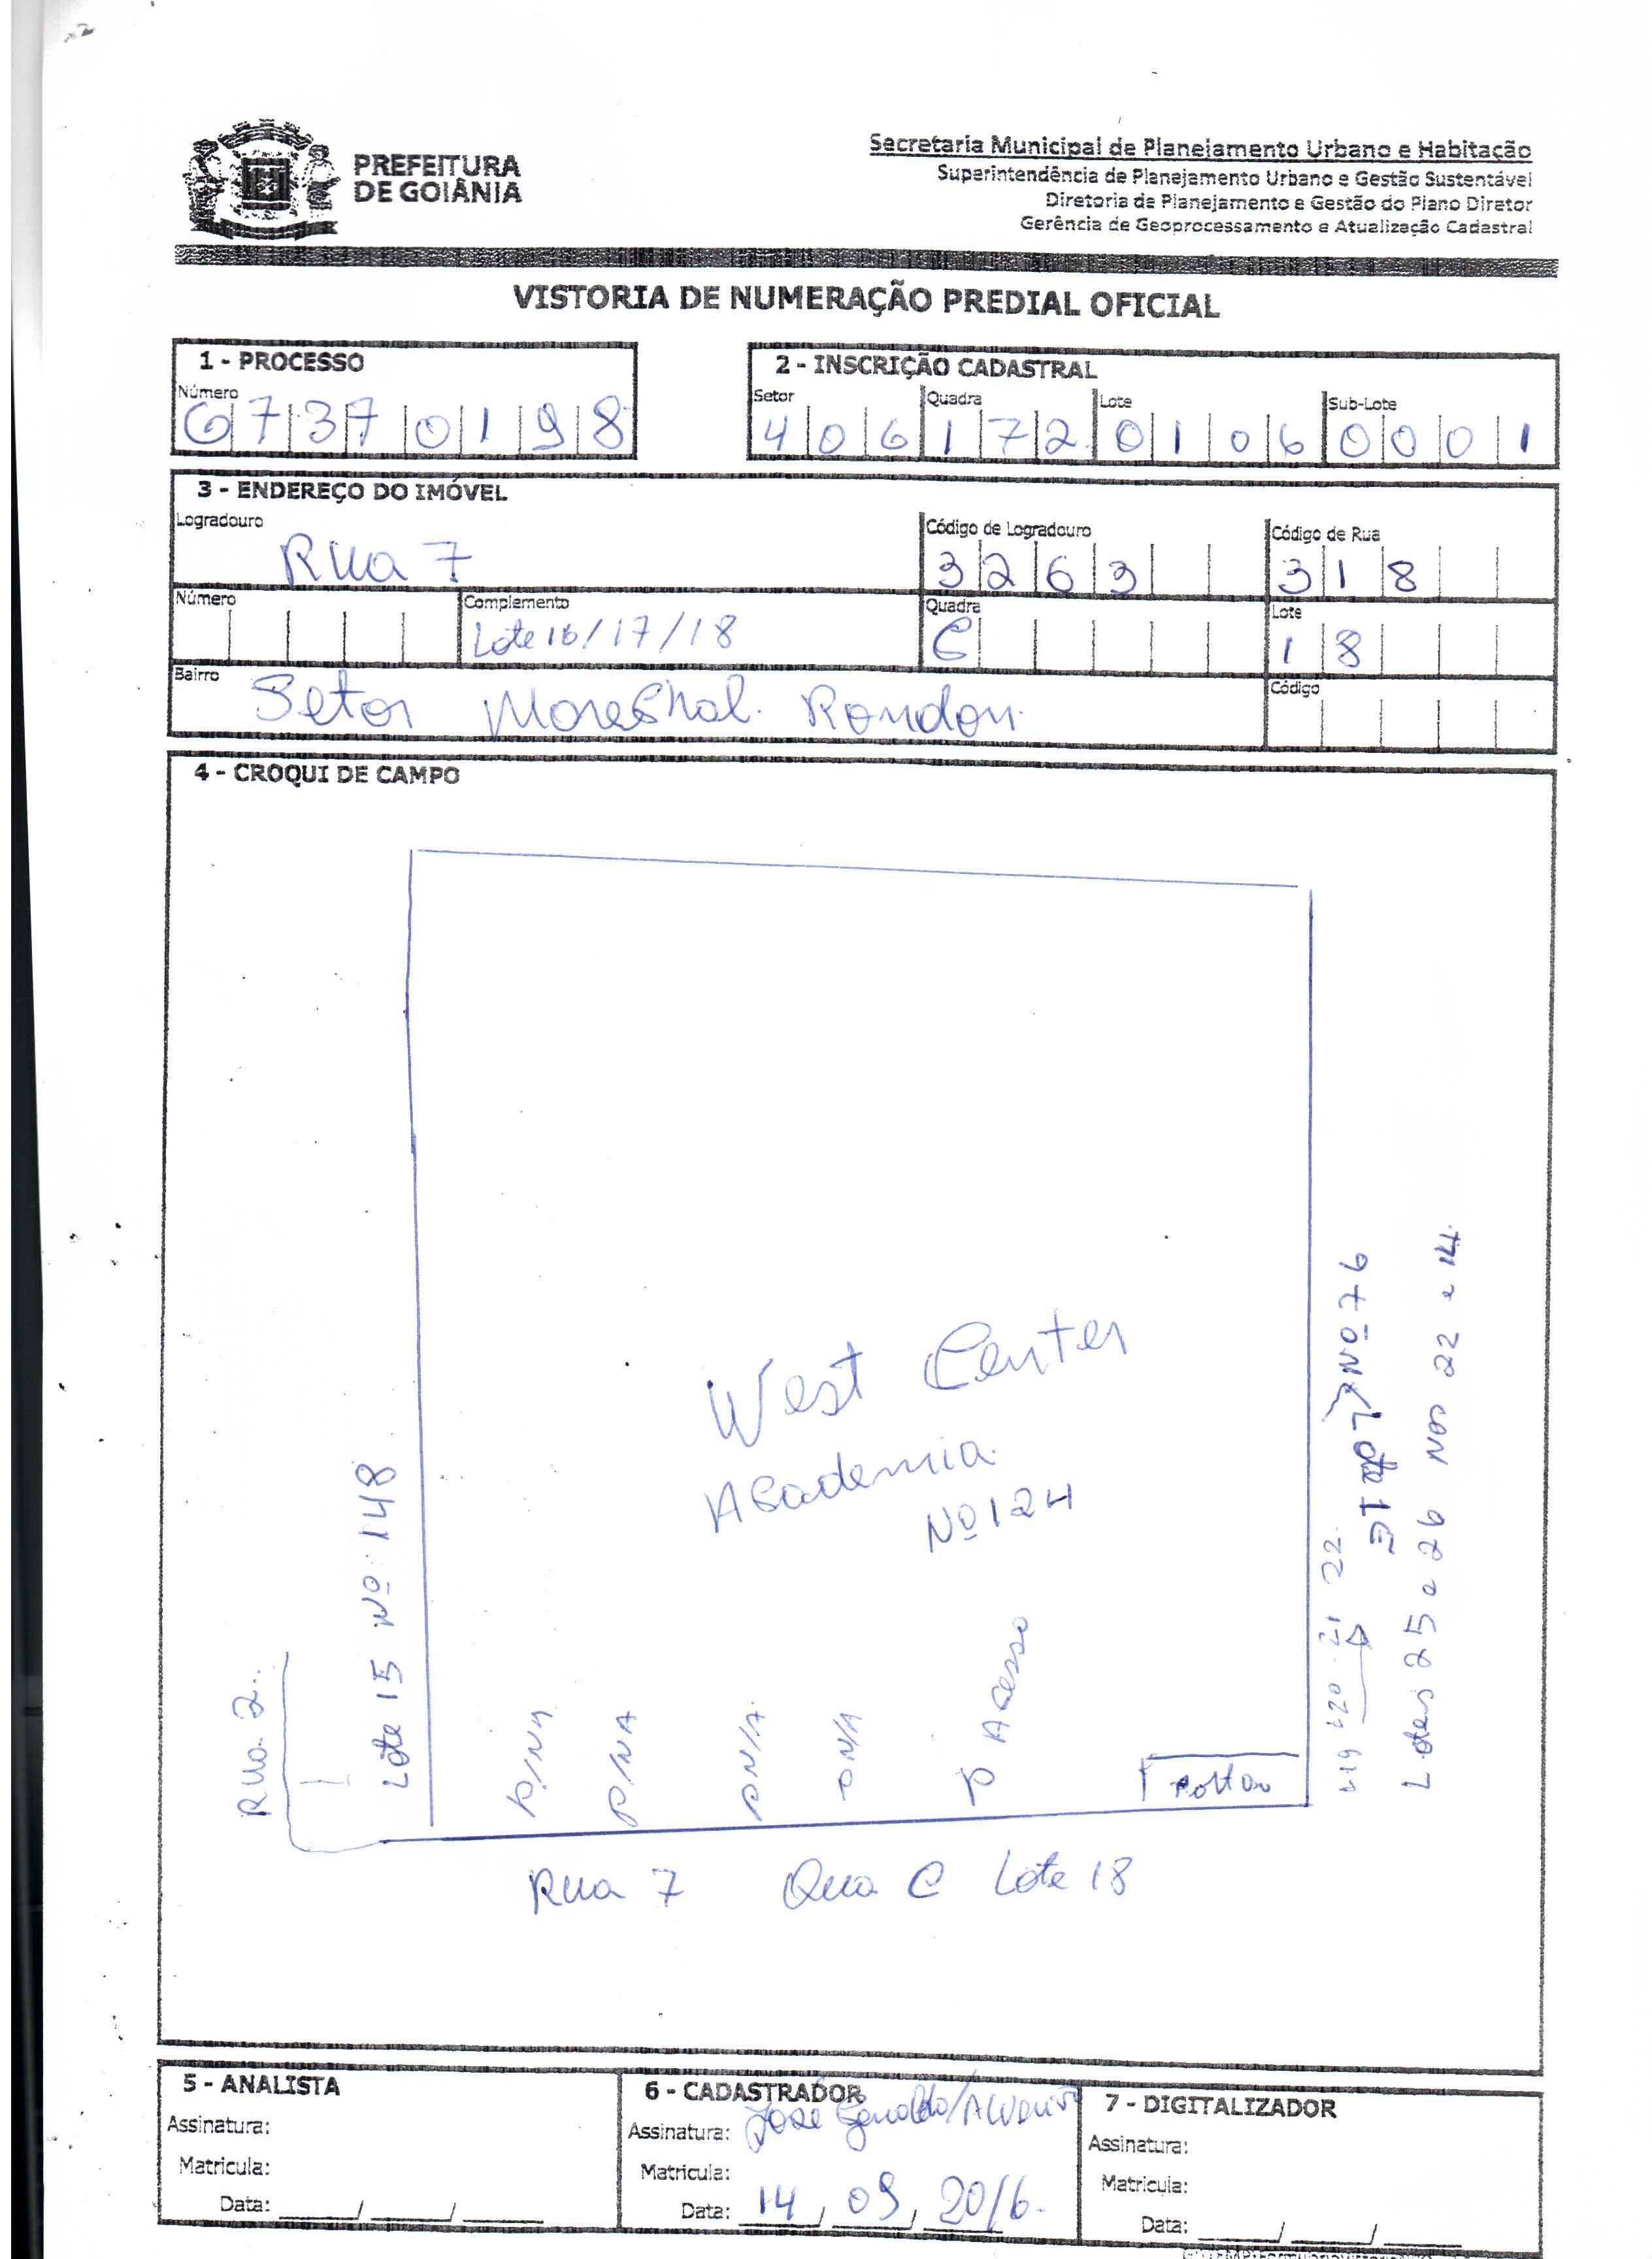 PREFEITURA
DE GOIÂNIA
Secretaria Municipal de Planejamento Urbano e Habitação
Superintendência de Planejamento Urbano e Gestão Sustentável
Diretoria de Planejamento e Gestão do Plano Diretor
Gerência de Geoprocessamento e Atualização Cadastral
VISTORIA DE NUMERAÇÃO PREDIAL OFICIAL
1 - PROCESSO
Número
67370198
2 - INSCRIÇÃO CADASTRAL
Setor Quadra Lote Sub-Lote
406 172 0106 0001
3 - ENDEREÇO DO IMÓVEL
Logradouro Código de Logradouro Código de Rua
Rua 7 3263 318
Número Complemento Quadra Lote
Lote 16/17/18 C 18
Bairro Código
Setor Mareshal. Rondon.
4 - CROQUI DE CAMPO
West Center
Academia.
Nº 124
Rua 2..
Lote 15 Nº 148
P/NA
P/NA
P N/A
P N/A
P Acesso
Portão
L19 L20 21 22.
Nº 76
Lotes 25 e 26 Nos 22 e 14.
Rua 7 Qua C Lote 18
5 - ANALISTA
Assinatura:
Matricula:
Data: ____/____/____
6 - CADASTRADOR
Assinatura: José
Matricula:
Data: 14/09/2016.
7 - DIGITALIZADOR
Assinatura:
Matricula:
Data: ____/____/____